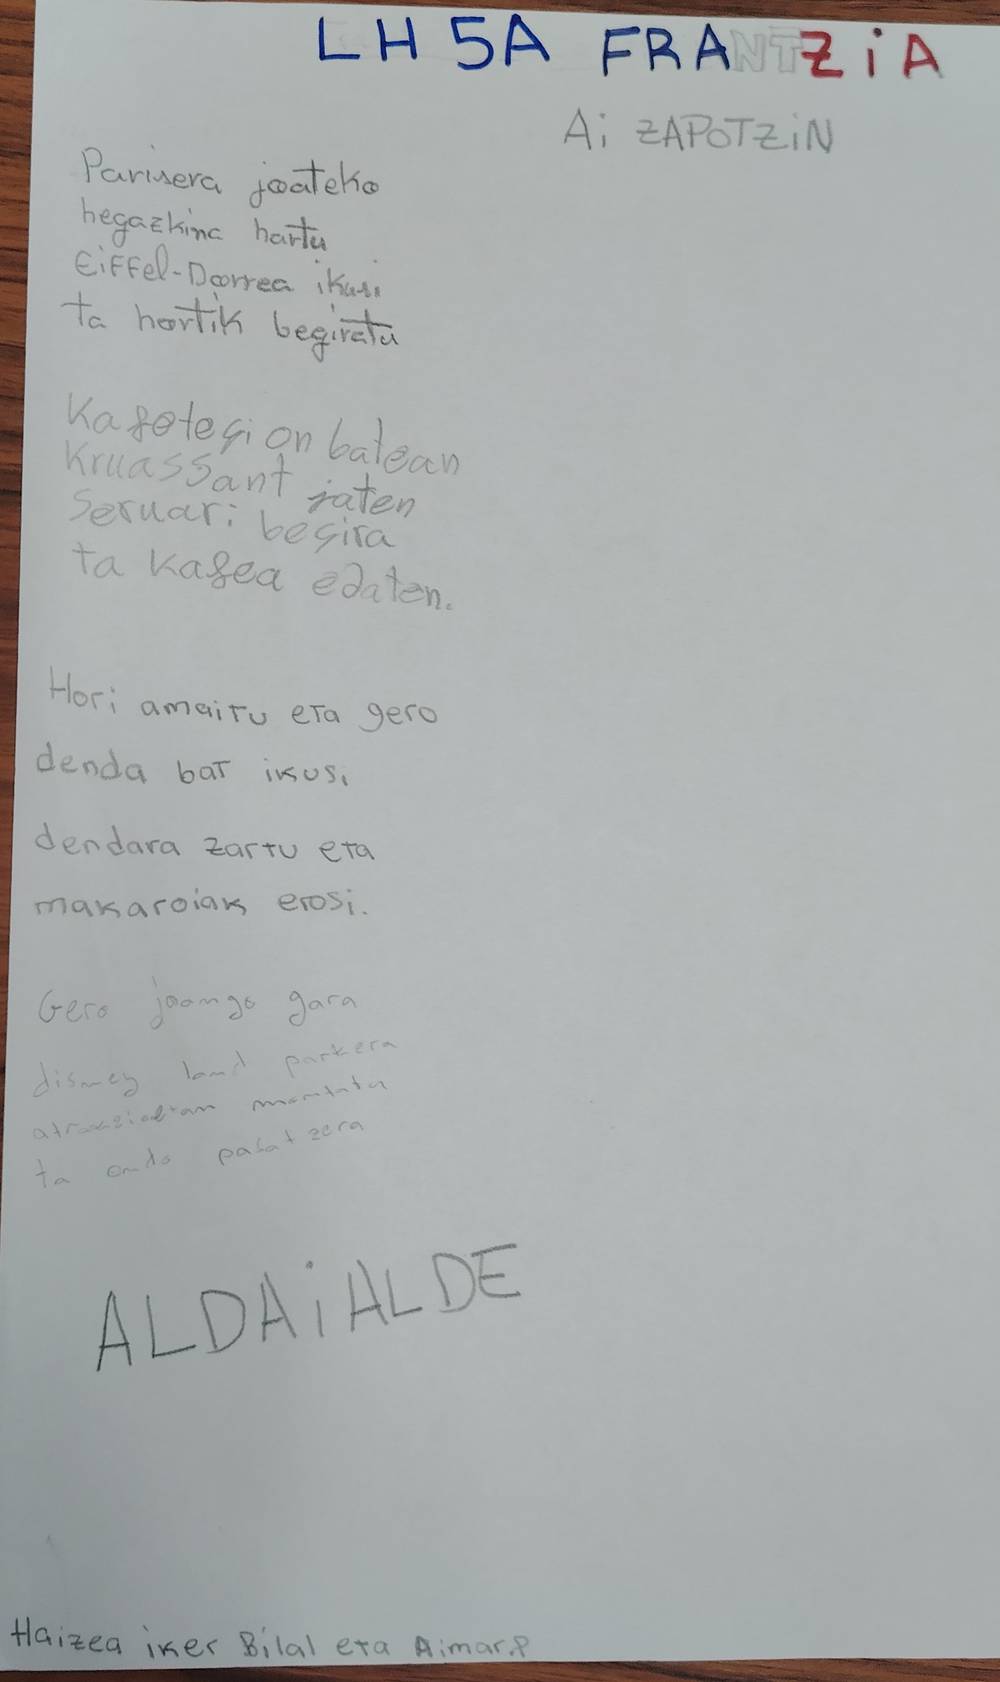 LH 5A FRANTZiA
Ai ZAPOTZiN
Parisera joateko
hegazkina hartu
Eiffel-Dorrea ikusi
ta hortik begiratu
Kafetegi on batean
Kruassant jaten
Seruari begira
ta kafea edaten.
Hori amaitu eta gero
denda bat ikusi
dendara zartu eta
makaroiak erosi.
Gero joango gara
disney land parkera
montatu
ta ondo pasatzera
ALDAiALDE
Haizea iker Bilal eta Aimar.P